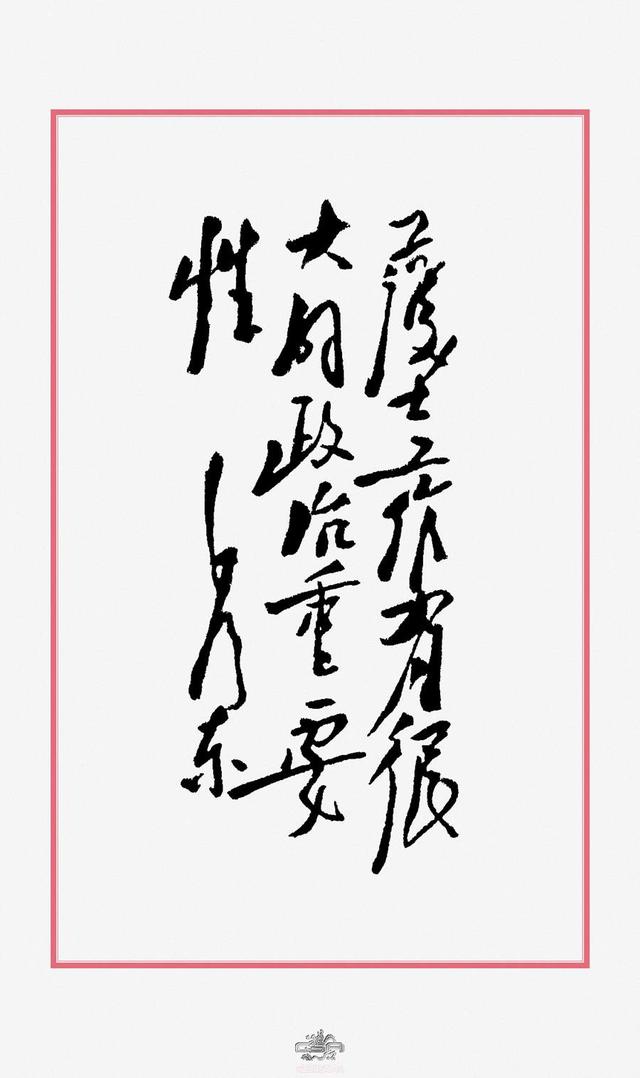 護士工作有很
大的政治重要
性
毛澤东